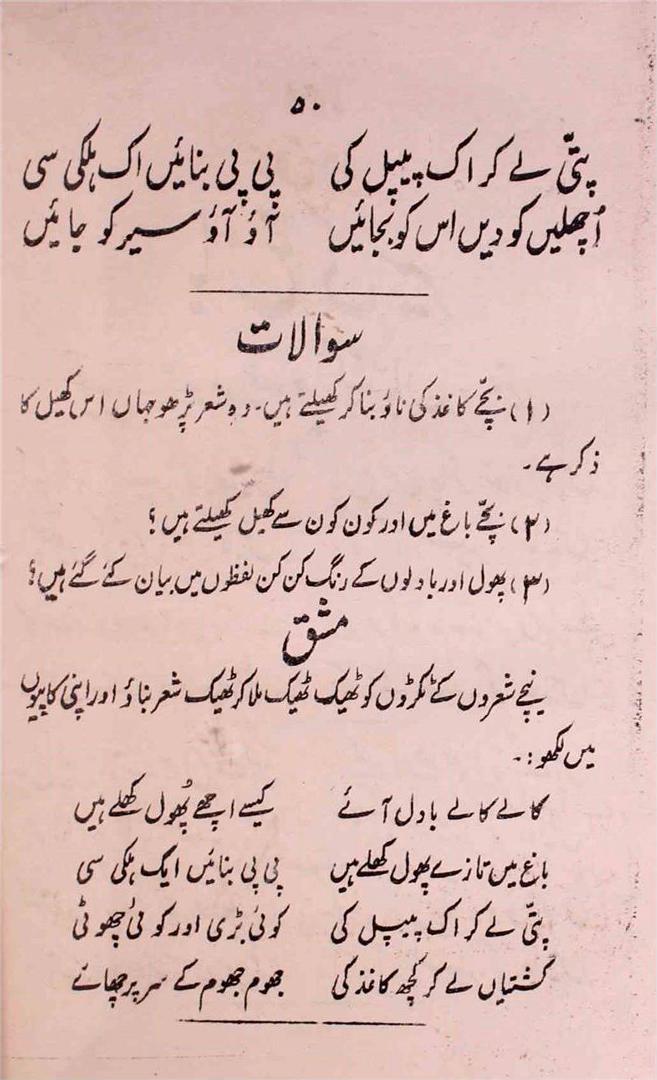 ۵۰
پتّی لے کر اک پیپل کی پی پی بنائیں اک ہلکی سی
اُچھلیں کودیں اس کو بجائیں آؤ آؤ سیر کو جائیں
سوالات
(۱) بچّے کاغذ کی ناؤ بنا کر کھیلتے ہیں۔ وہ شعر پڑھو جہاں اس کھیل کا
ذکر ہے۔
(۲) بچّے باغ میں اور کون کون سے کھیل کھیلتے ہیں؟
(۳) پھول اور بادلوں کے رنگ کن کن لفظوں میں بیان کئے گئے ہیں؟
مشق
نیچے شعروں کے ٹکڑوں کو ٹھیک ٹھیک ملا کر ٹھیک شعر بناؤ اور اپنی کاپیوں
میں لکھو:۔
کالے کالے بادل آئے کیسے اچھے پھُول کھلے ہیں
باغ میں تازے پھول کھلے ہیں پی پی بنائیں ایک ہلکی سی
پتّی لے کر اک پیپل کی کوئی بڑی اور کوئی چھوٹی
کشتیاں لے کر کچھ کاغذ کی جھوم جھوم کے سر پر چھائے